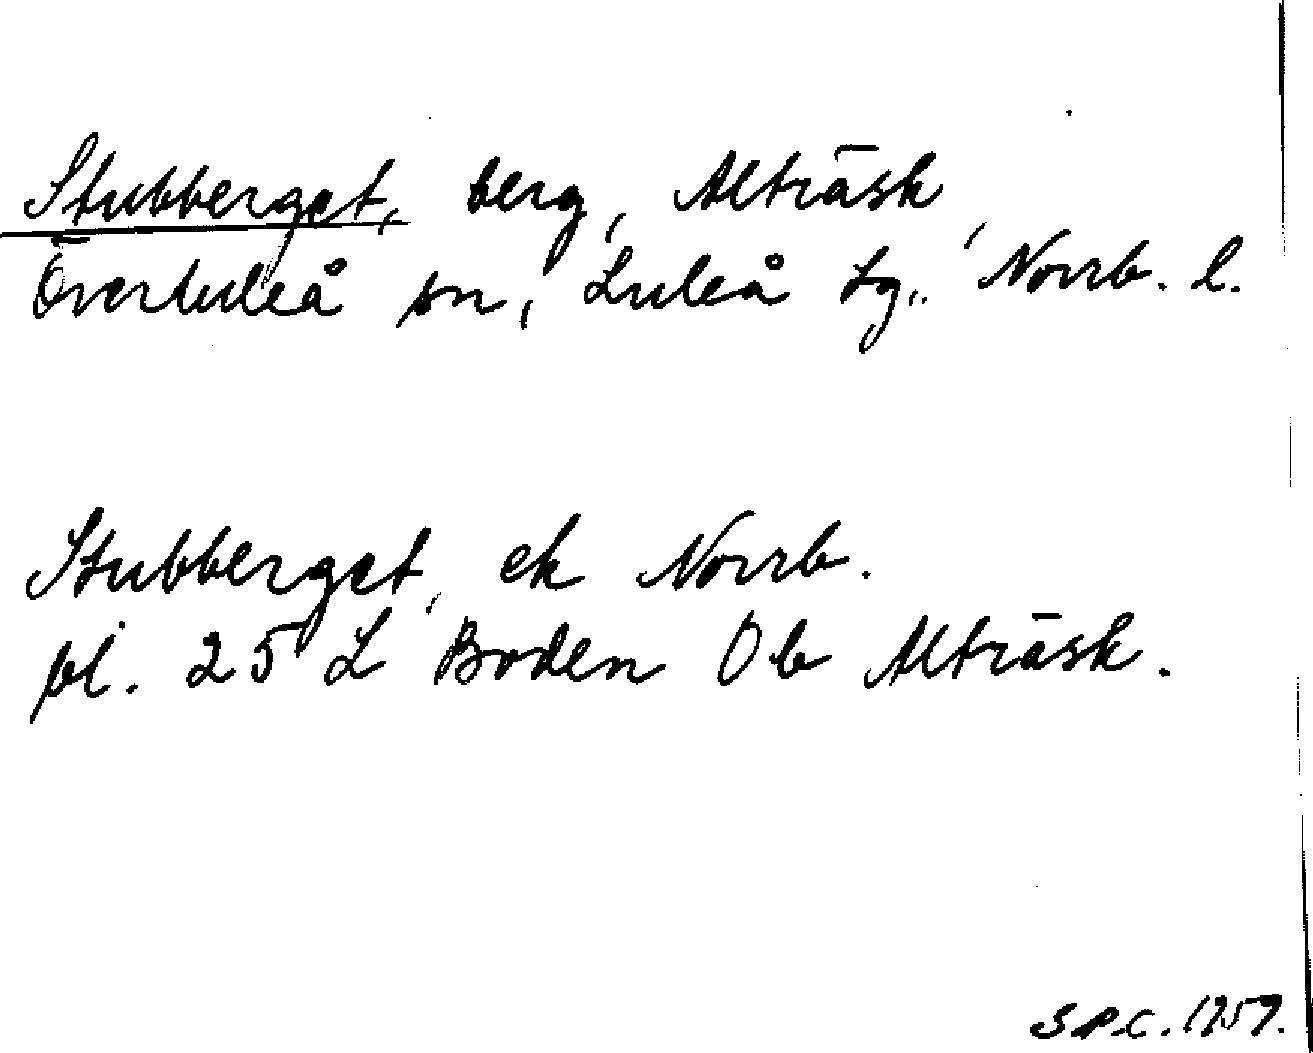 Stubberget, berg, Alträsk,
Överluleå sn, Luleå tg., Norrb. l.
Stubberget, ek Norrb.
bl. 25 L Boden Ob Alträsk.
S.P.C. 1959.